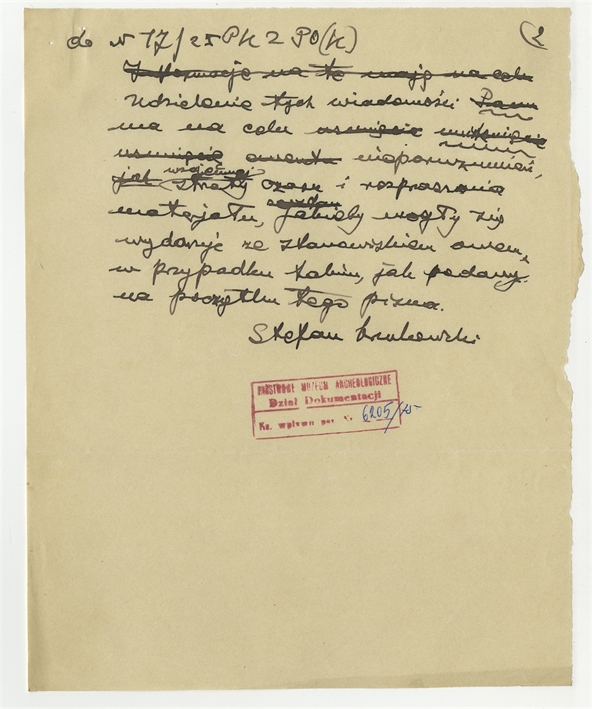 do N 17/25 PK 2 PO(K) (2
Informacje na te mają na celu
Udzielenie tych wiadomości Panu
ma na celu usunięcie uniknięcie
usunięcie nieporozumień,
wzajemnej
jak straty czasu i rozpraszania
materjału, jakieby mogły się
wydarzyć ze stanowiskiem
w przypadku takim, jak podany
na początku tego pisma.
Stefan Krukowski
PAŃSTWOWE MUZEUM ARCHEOLOGICZNE
Dział Dokumentacji
Ks. wpływu poz. N. 6205/65